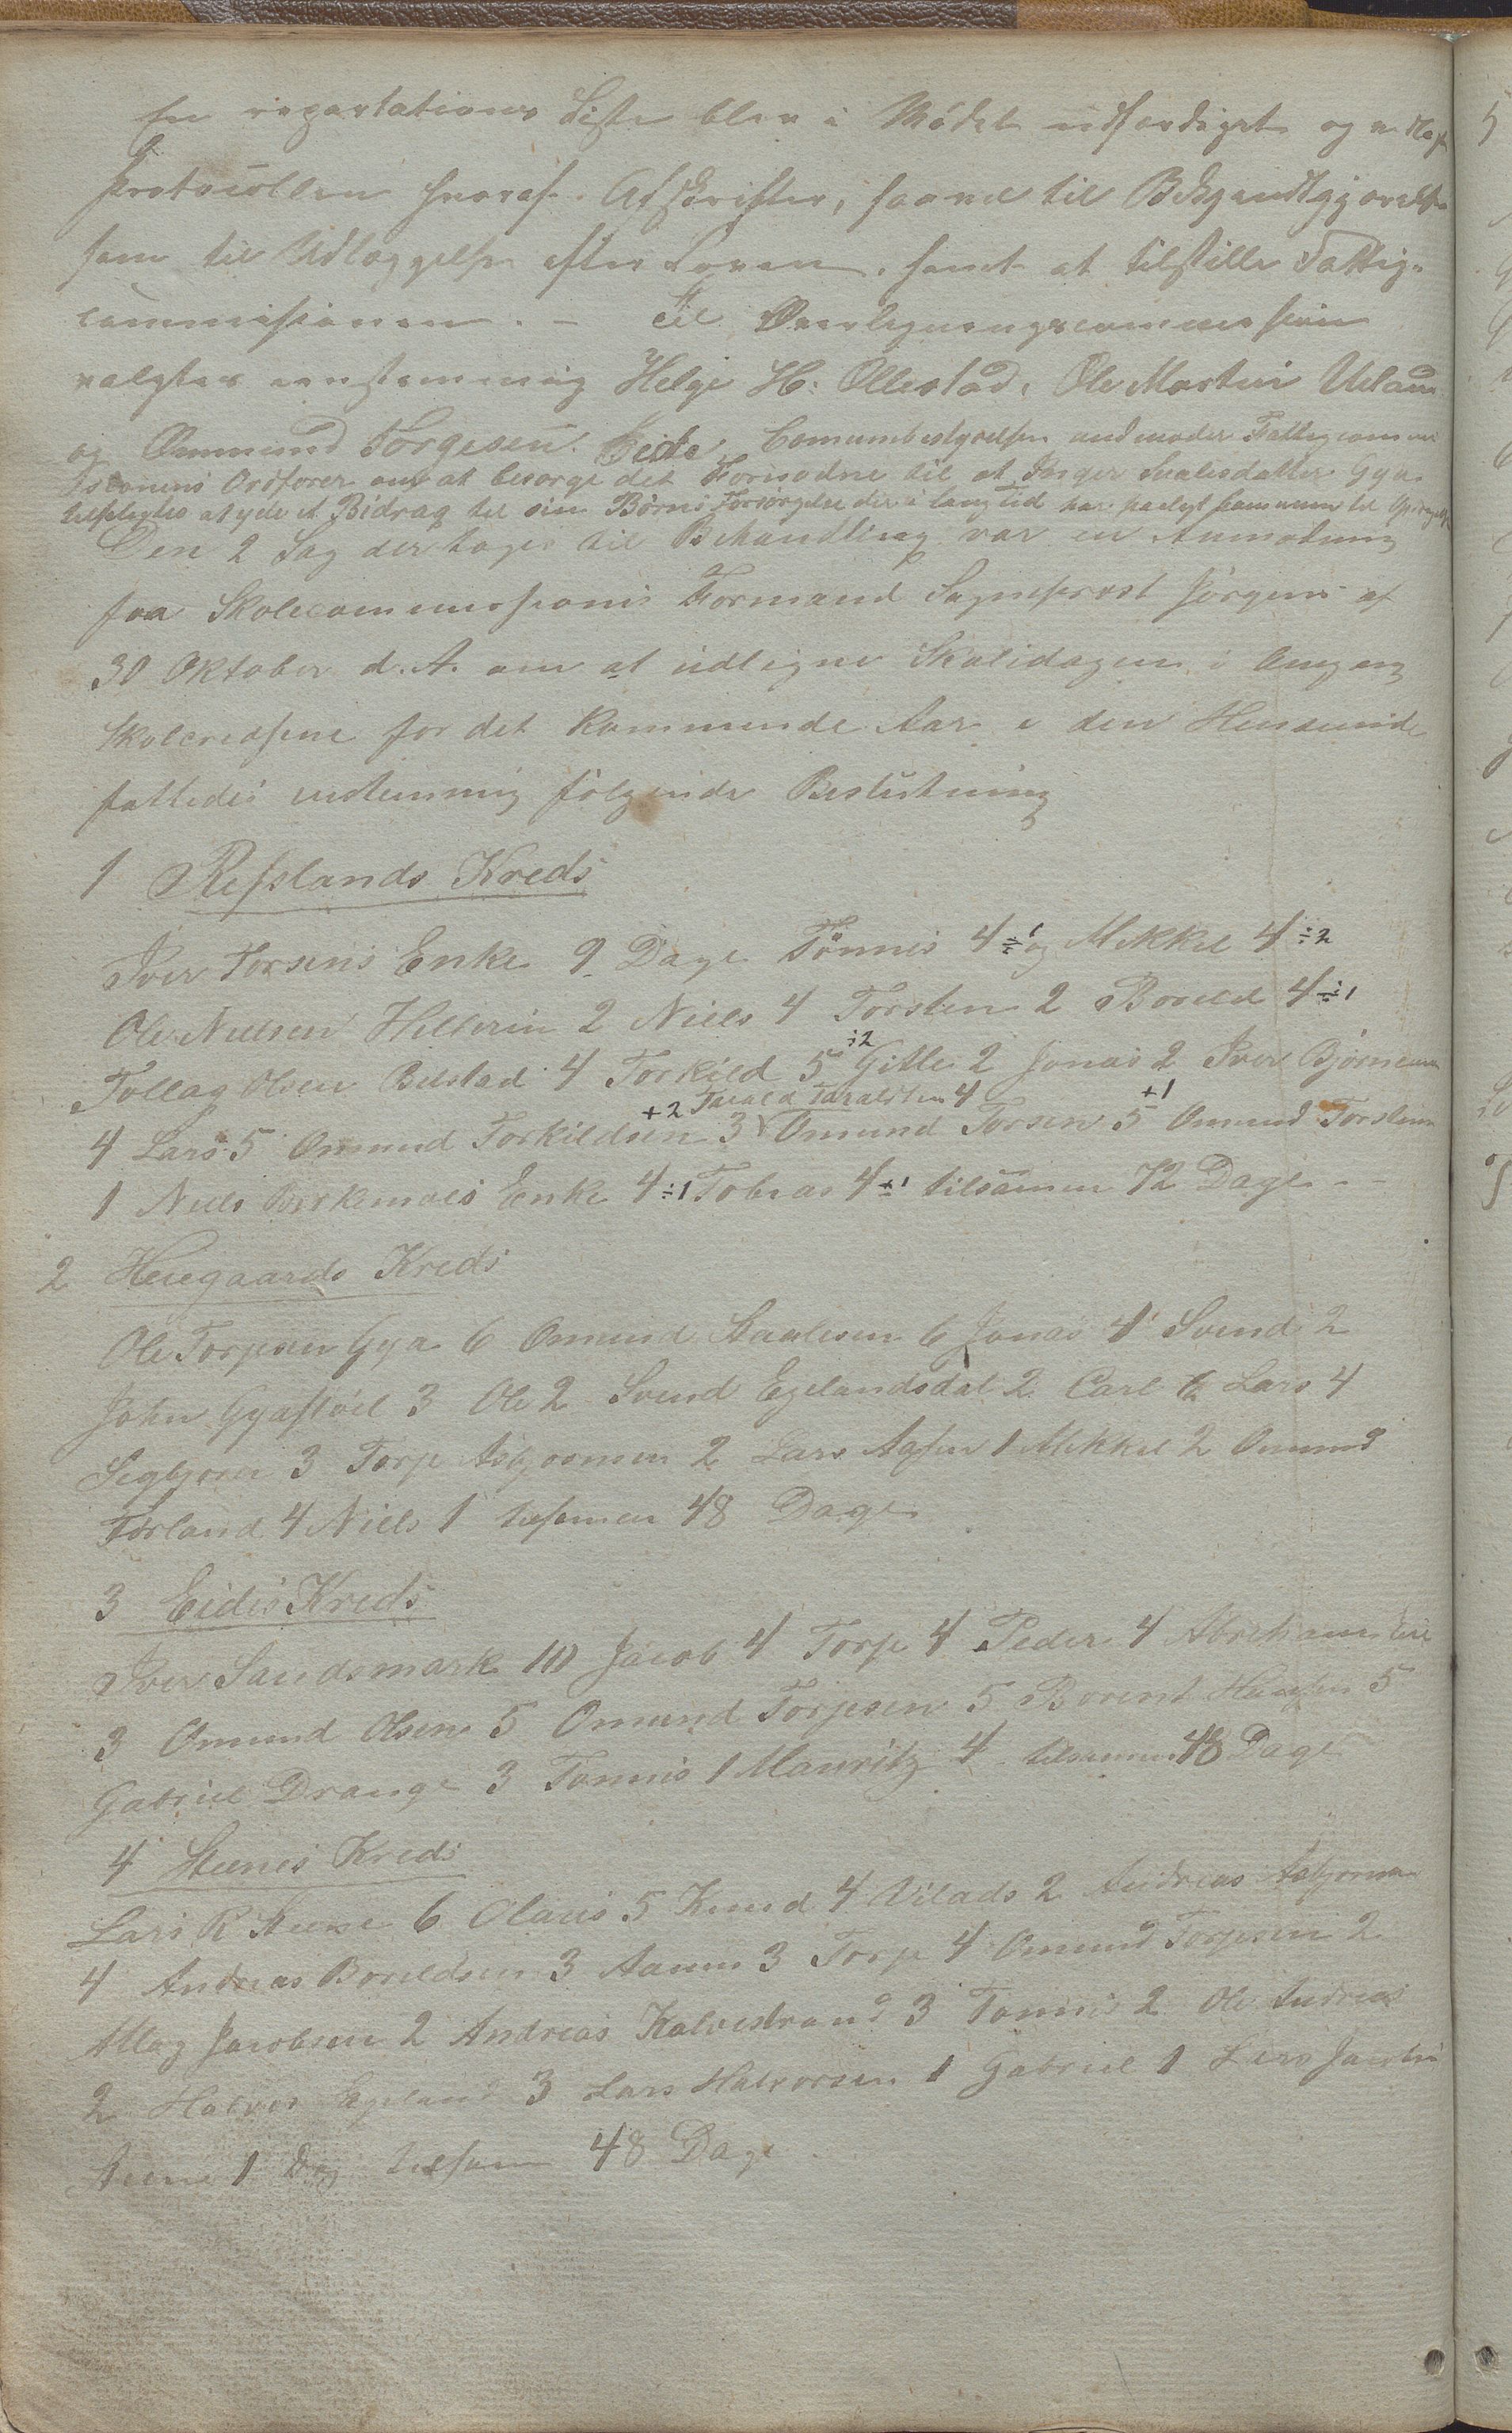 En repartations Liste blev i Mødet udfærdiget og vedlagt
Protocollen hvoraf Afskrifter, saavel til Bekjendtgjørelse
som til Udlæggelse efter Loven, samt at tilstille Fattig-
commissionen. – Til Overligningscommission
valgtes eenstemmig Helge H: Ollestad, Ole Martin Ueland
og Ommund Torgesen Eide. Comunbestyrelsen anmoder Fattigcommi
ssionens Ordfører om at besørge det Fornødne til at Inger Svalesdatter Gya
tilpligtes at yde et Bidrag til sin Børns Forsørgelse der i lang Tid har
Den 2 Sag der toges til Behandling var en Anmodning
fra Skolecommissionens Formand Sogneprest Jørgens af
30 Oktober d. A. om at udligne Skolidagene i Omgang
skolcredsene for det kommende Aar i den Henseende
fattedes enstemmig følgende Beslutning
1 Refslands Kreds
Iver Torsens Enke 9 Dage Tønnes 4 ÷1 og Mikkel 4 ÷2
Ole Nilsen Helleren 2 Niels 4 Torsten 2 Boreld 4 ÷1
Tollag Olsen Bilstad 4 Torkild 5 ÷2 Gitle 2 Jonas 2 Iver Bjørnesen
+2 Tarald Taraldsen 4 +1
4 Lars 5 Omund Torkildsen 3 Omund Torsen 5 Omund Torstens
1 Niels Birkemoes Enke 4 ÷1 Tobias 4 +1 tilsamen 72 Dage
2 Heiegaards Kreds
Ole Torjesen Gya 6 Omund Staalesen 6 Jonas 4 Svend 2
John Gyastøil 3 Ole 2 Svend Egelandsdal 2 Carl 6 Lars 4
Segbjørn 3 Torje Asbjørnsen 2 Lars 1 Mikkel 2 Omund
Førland 4 Niels 1 tilsamen 48 Dage
3 Eides Kreds
Iver Sandsmark 10 Jacob 4 Torje 4 Peder 4 Abraham Eie
3 Omund Olsen 5 Omund Torjesen 5 Borent Hansen 5
Gabriel Drange 3 Tønnis 1 Mauritz 4 tilsammen 48 Dage
4 Steenes Kreds
Lars R Steene 6 Olaus 5 Knud 4 Vilads 2 Andreas Asbjørnsen
4 Andreas Boreldsen 3 Aanen 3 Torje 4 Omund Torjesen 2
Atlag Jacobsen 2 Andreas Kalvestrand 3 Tønnis 2 Ole Andreas
2 Halvor Egeland 3 Lars Halvorsen 1 Gabriel 1 Lars Jacobs
Steene 1 Dag tilsam 48 Dage